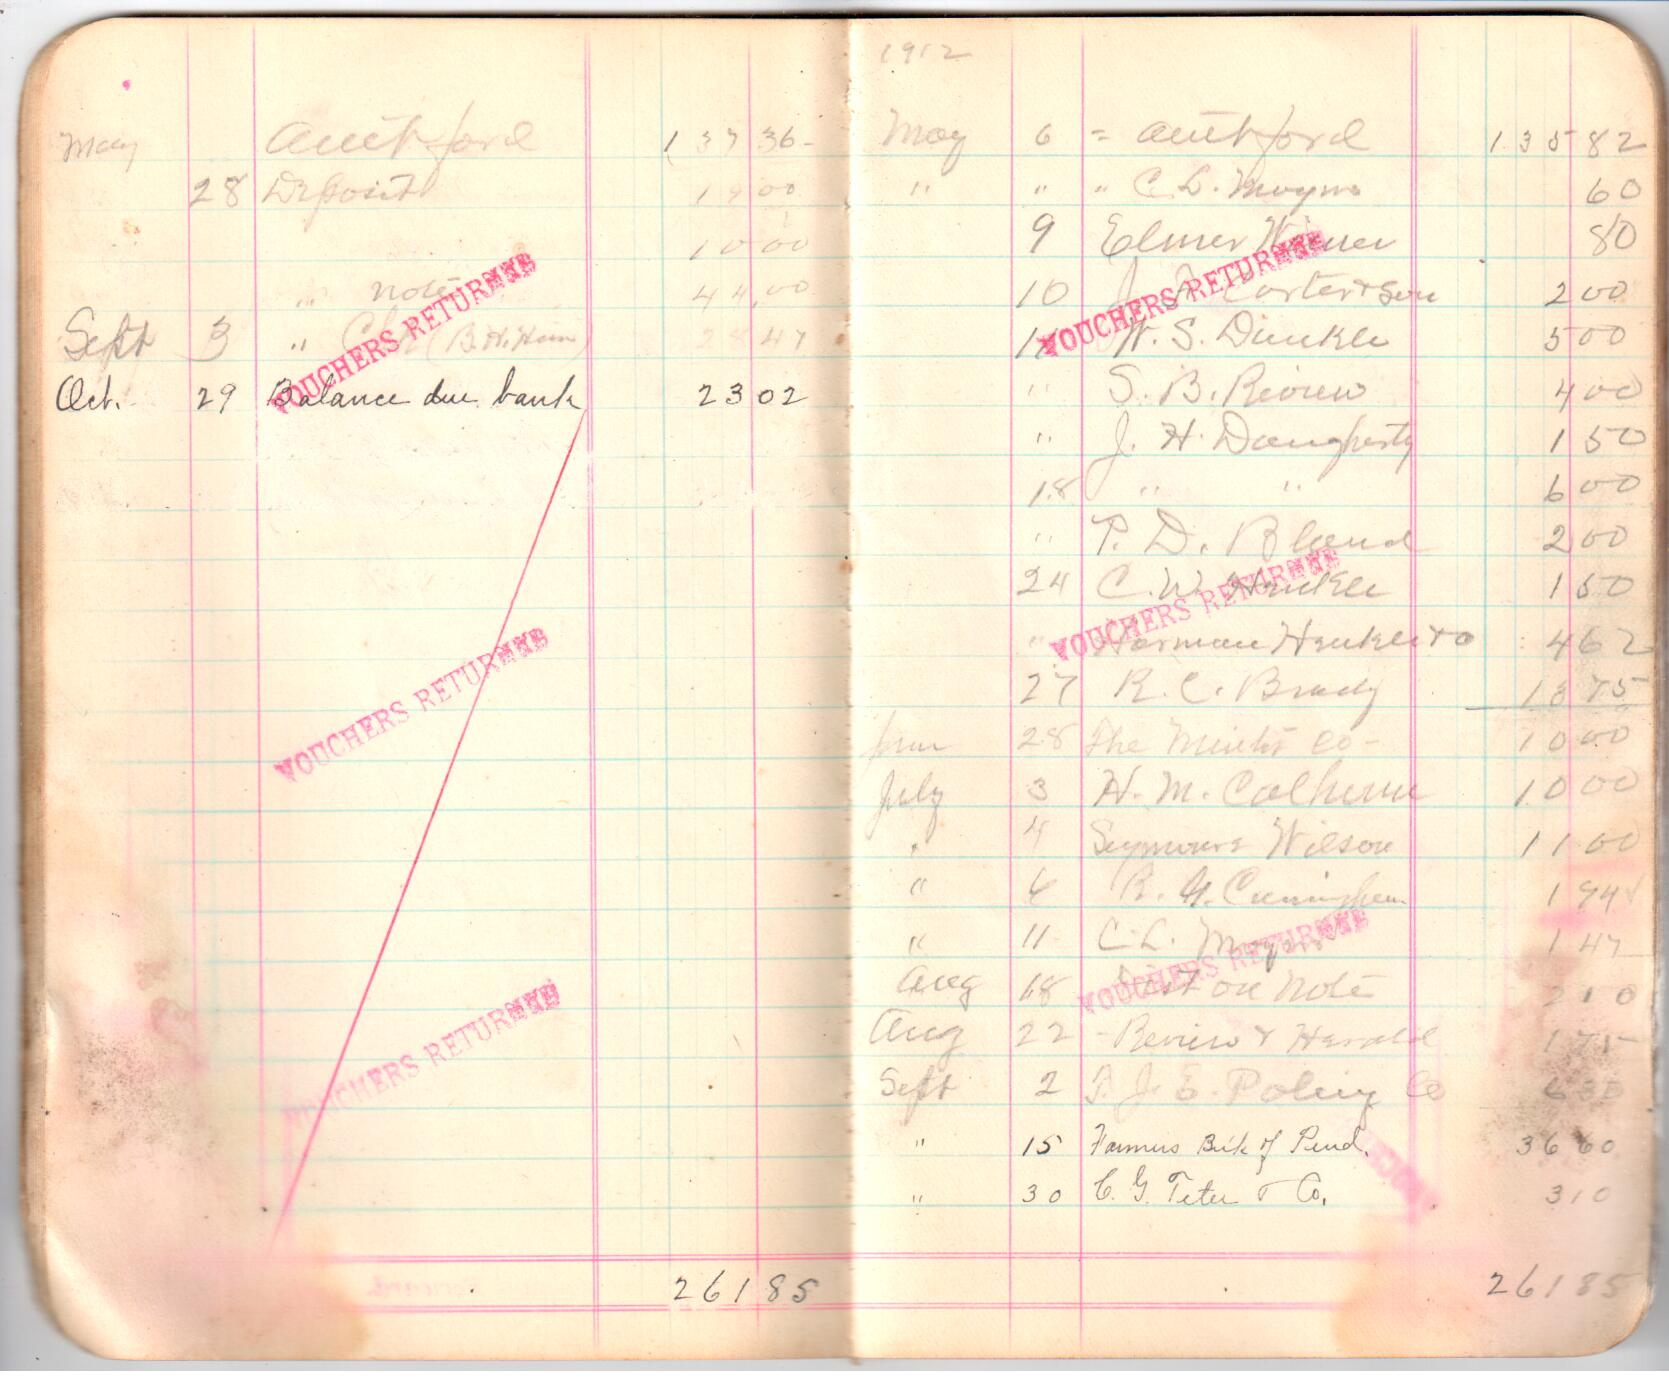 May Am't for'd 137 36
28 Deposit 19 00
10 00
" note 44.00
Sept 3 " (B. H. Hiner) 28 47
Oct. 29 Balance due bank 23 02
VOUCHERS RETURNED
VOUCHERS RETURNED
VOUCHERS RETURNED
261 85
1912
May 6 = Am't for'd 135 82
" " " C. L. Moyers 60
9 Elmer 80
10 J. A. Carter & Son 2 00
11 W. S. Dunkle 5 00
" S. B. Review 4 00
" J. H. Daugherty 1 50
18 " " 6 00
" P. D. Bland 2 00
24 C. W. Henkle 1 50
" Harman Henkle & Co 4 62
27 R. C. Brady 18 75
June 28 The Co - 10 00
July 3 H. M. Calhoun 10 00
" 4 Seymour Wilson 11 00
" 6 R. G. Cuningham 1 94
" 11 C. L. Moyers 1 47
Aug 18 Dis't on Note 2 10
Aug 22 - Review & Herald 1 75
Sept 2 T. J. E. Poling Co 6 30
" 15 Farmers Bk of Pend. 36 60
" 30 C. G. Teter & Co. 3 10
VOUCHERS RETURNED
VOUCHERS RETURNED
VOUCHERS RETURNED
261 85